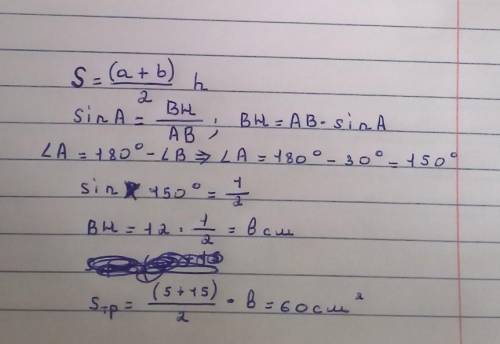 S = (a + b)/2 h
sin A = BH/AB ; BH = AB · sin A
∠A = 180° - ∠B ⇒ ∠A = 180° - 30° = 150°
sin 150° = 1/2
BH = 12 · 1/2 = 6 см
Sтр = (5 + 15)/2 · 6 = 60 см²